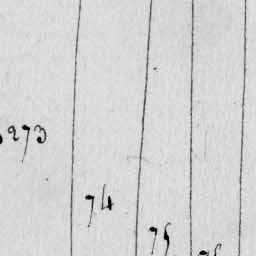 273
74
75